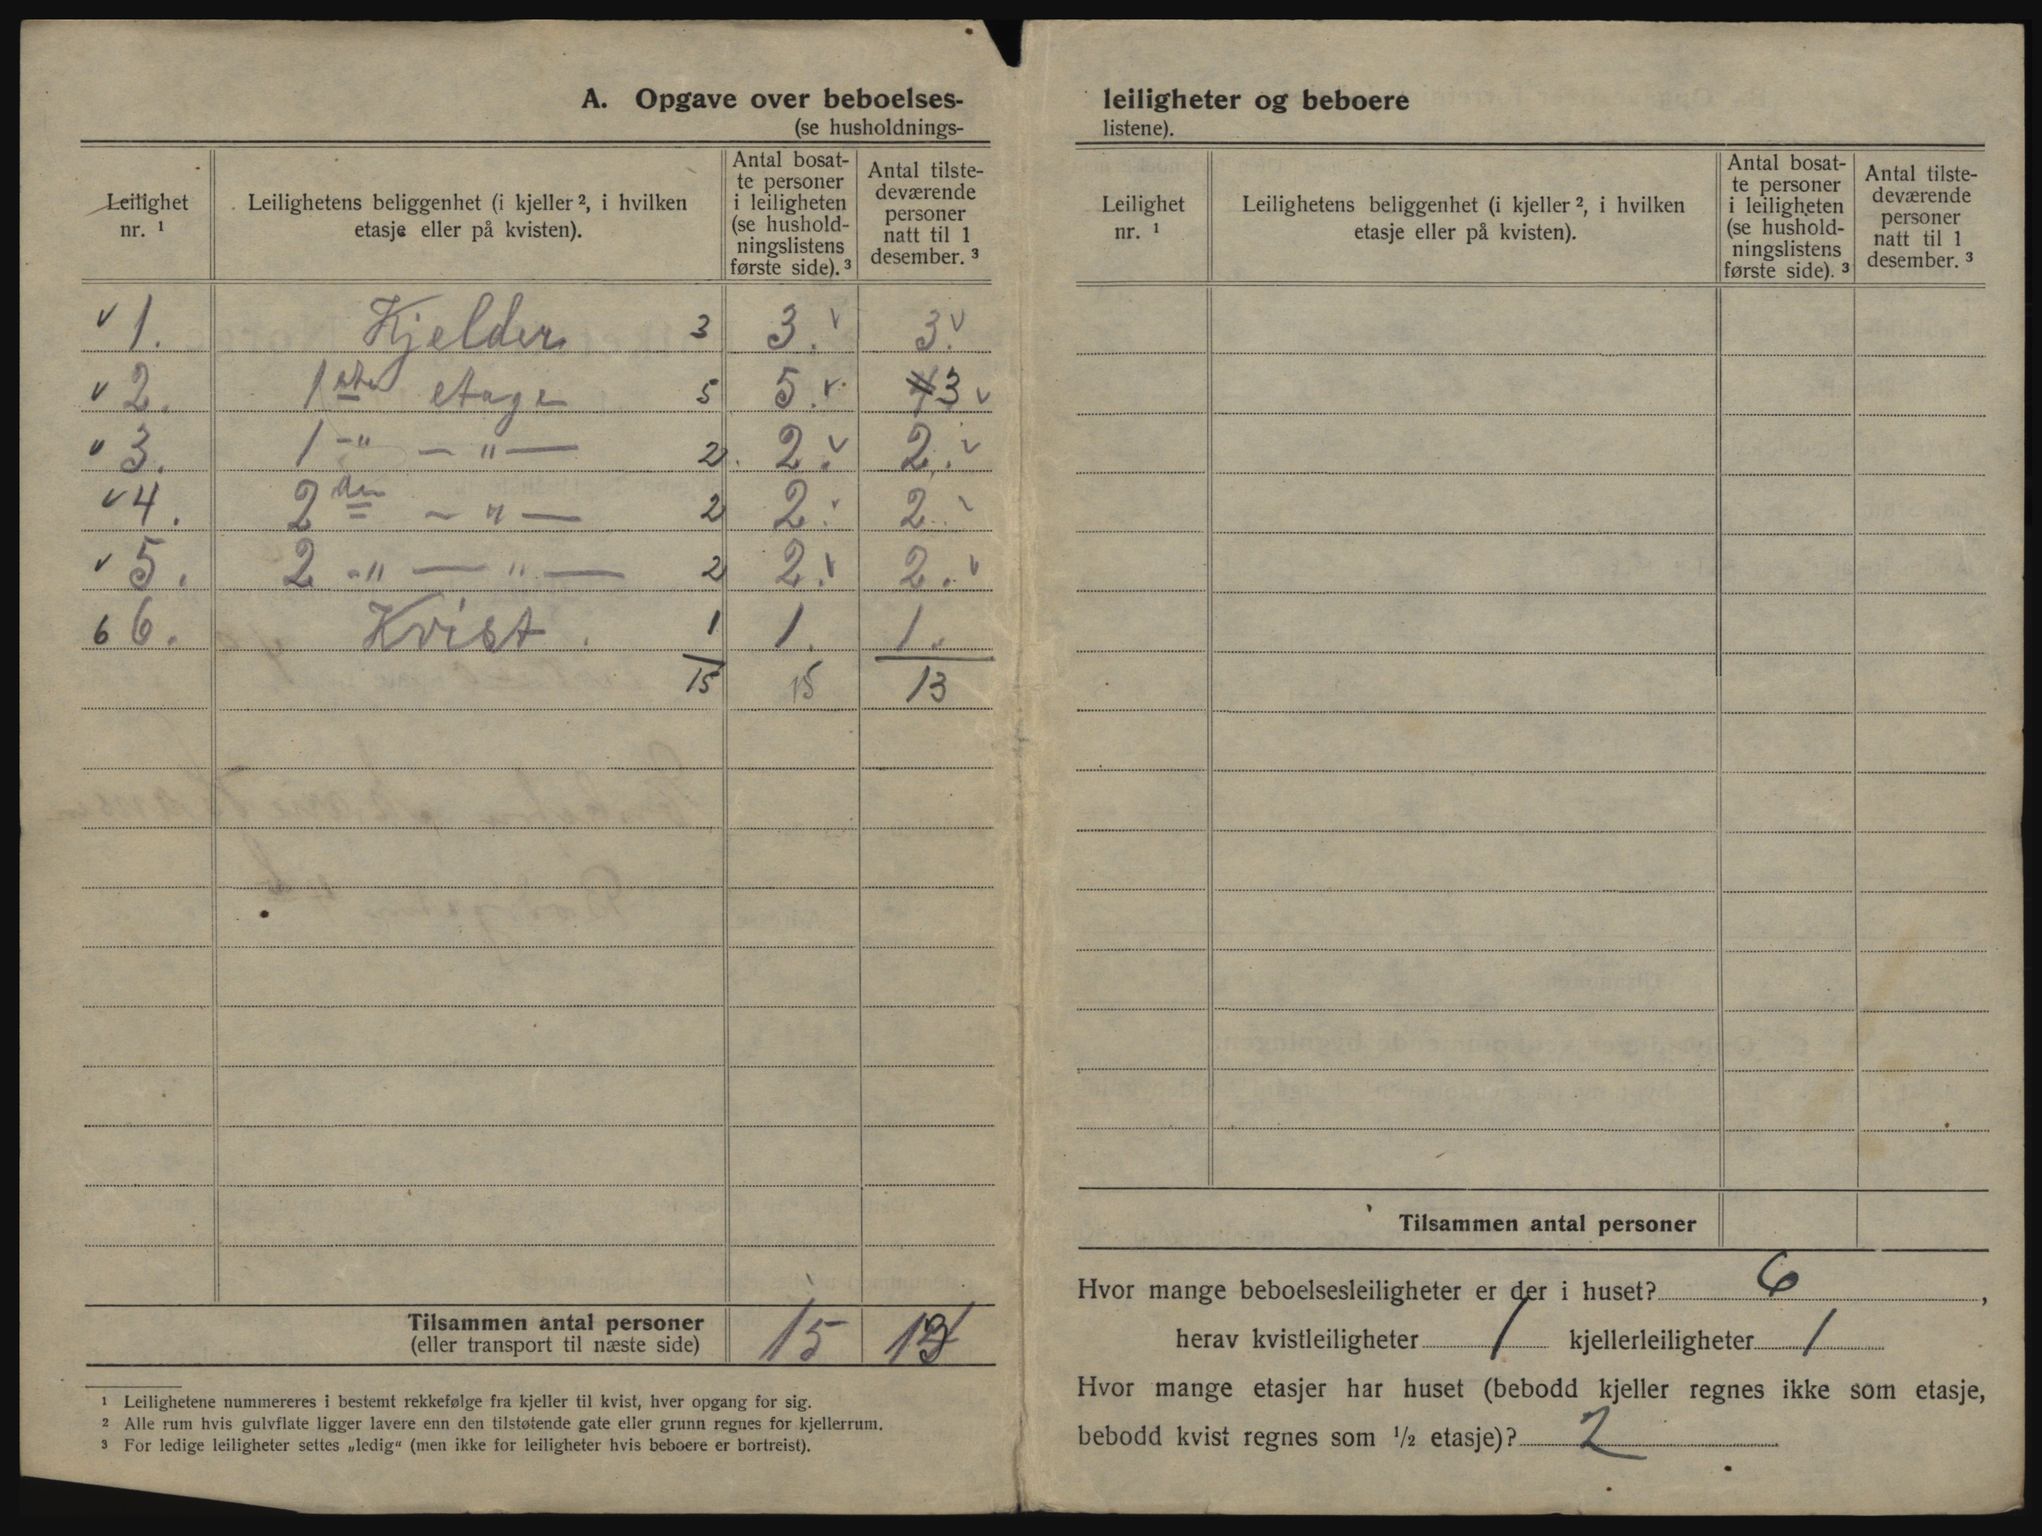 A. Opgave over beboelses-
(se husholdnings-
Leilighet nr. ¹
Leilighetens beliggenhet (i kjeller ², i hvilken etasje eller på kvisten).
Antal bosatte personer i leiligheten (se husholdningslistens første side). ³
Antal tilstedeværende personer natt til 1 desember. ³
v 1. Kjelder 3 3. v 3. v
v 2. 1ste etage 5 5. v 4 3 v
v 3. 1 -"- — " — 2 2. v 2. v
v 4. 2den — " — 2 2. v 2. v
v 5. 2 -"- — " — 2 2. v 2. v
6 6. Kvist. 1 1. 1. v
15 15 13
Tilsammen antal personer 15 13
(eller transport til næste side)
¹ Leilighetene nummereres i bestemt rekkefølge fra kjeller til kvist, hver opgang for sig.
² Alle rum hvis gulvflate ligger lavere enn den tilstøtende gate eller grunn regnes for kjellerrum.
³ For ledige leiligheter settes „ledig“ (men ikke for leiligheter hvis beboere er bortreist).
leiligheter og beboere
listene).
Leilighet nr. ¹
Leilighetens beliggenhet (i kjeller ², i hvilken etasje eller på kvisten).
Antal bosatte personer i leiligheten (se husholdningslistens første side). ³
Antal tilstedeværende personer natt til 1 desember. ³
Tilsammen antal personer
Hvor mange beboelsesleiligheter er der i huset? 6,
herav kvistleiligheter 1 kjellerleiligheter 1
Hvor mange etasjer har huset (bebodd kjeller regnes ikke som etasje,
bebodd kvist regnes som ½ etasje)? 2